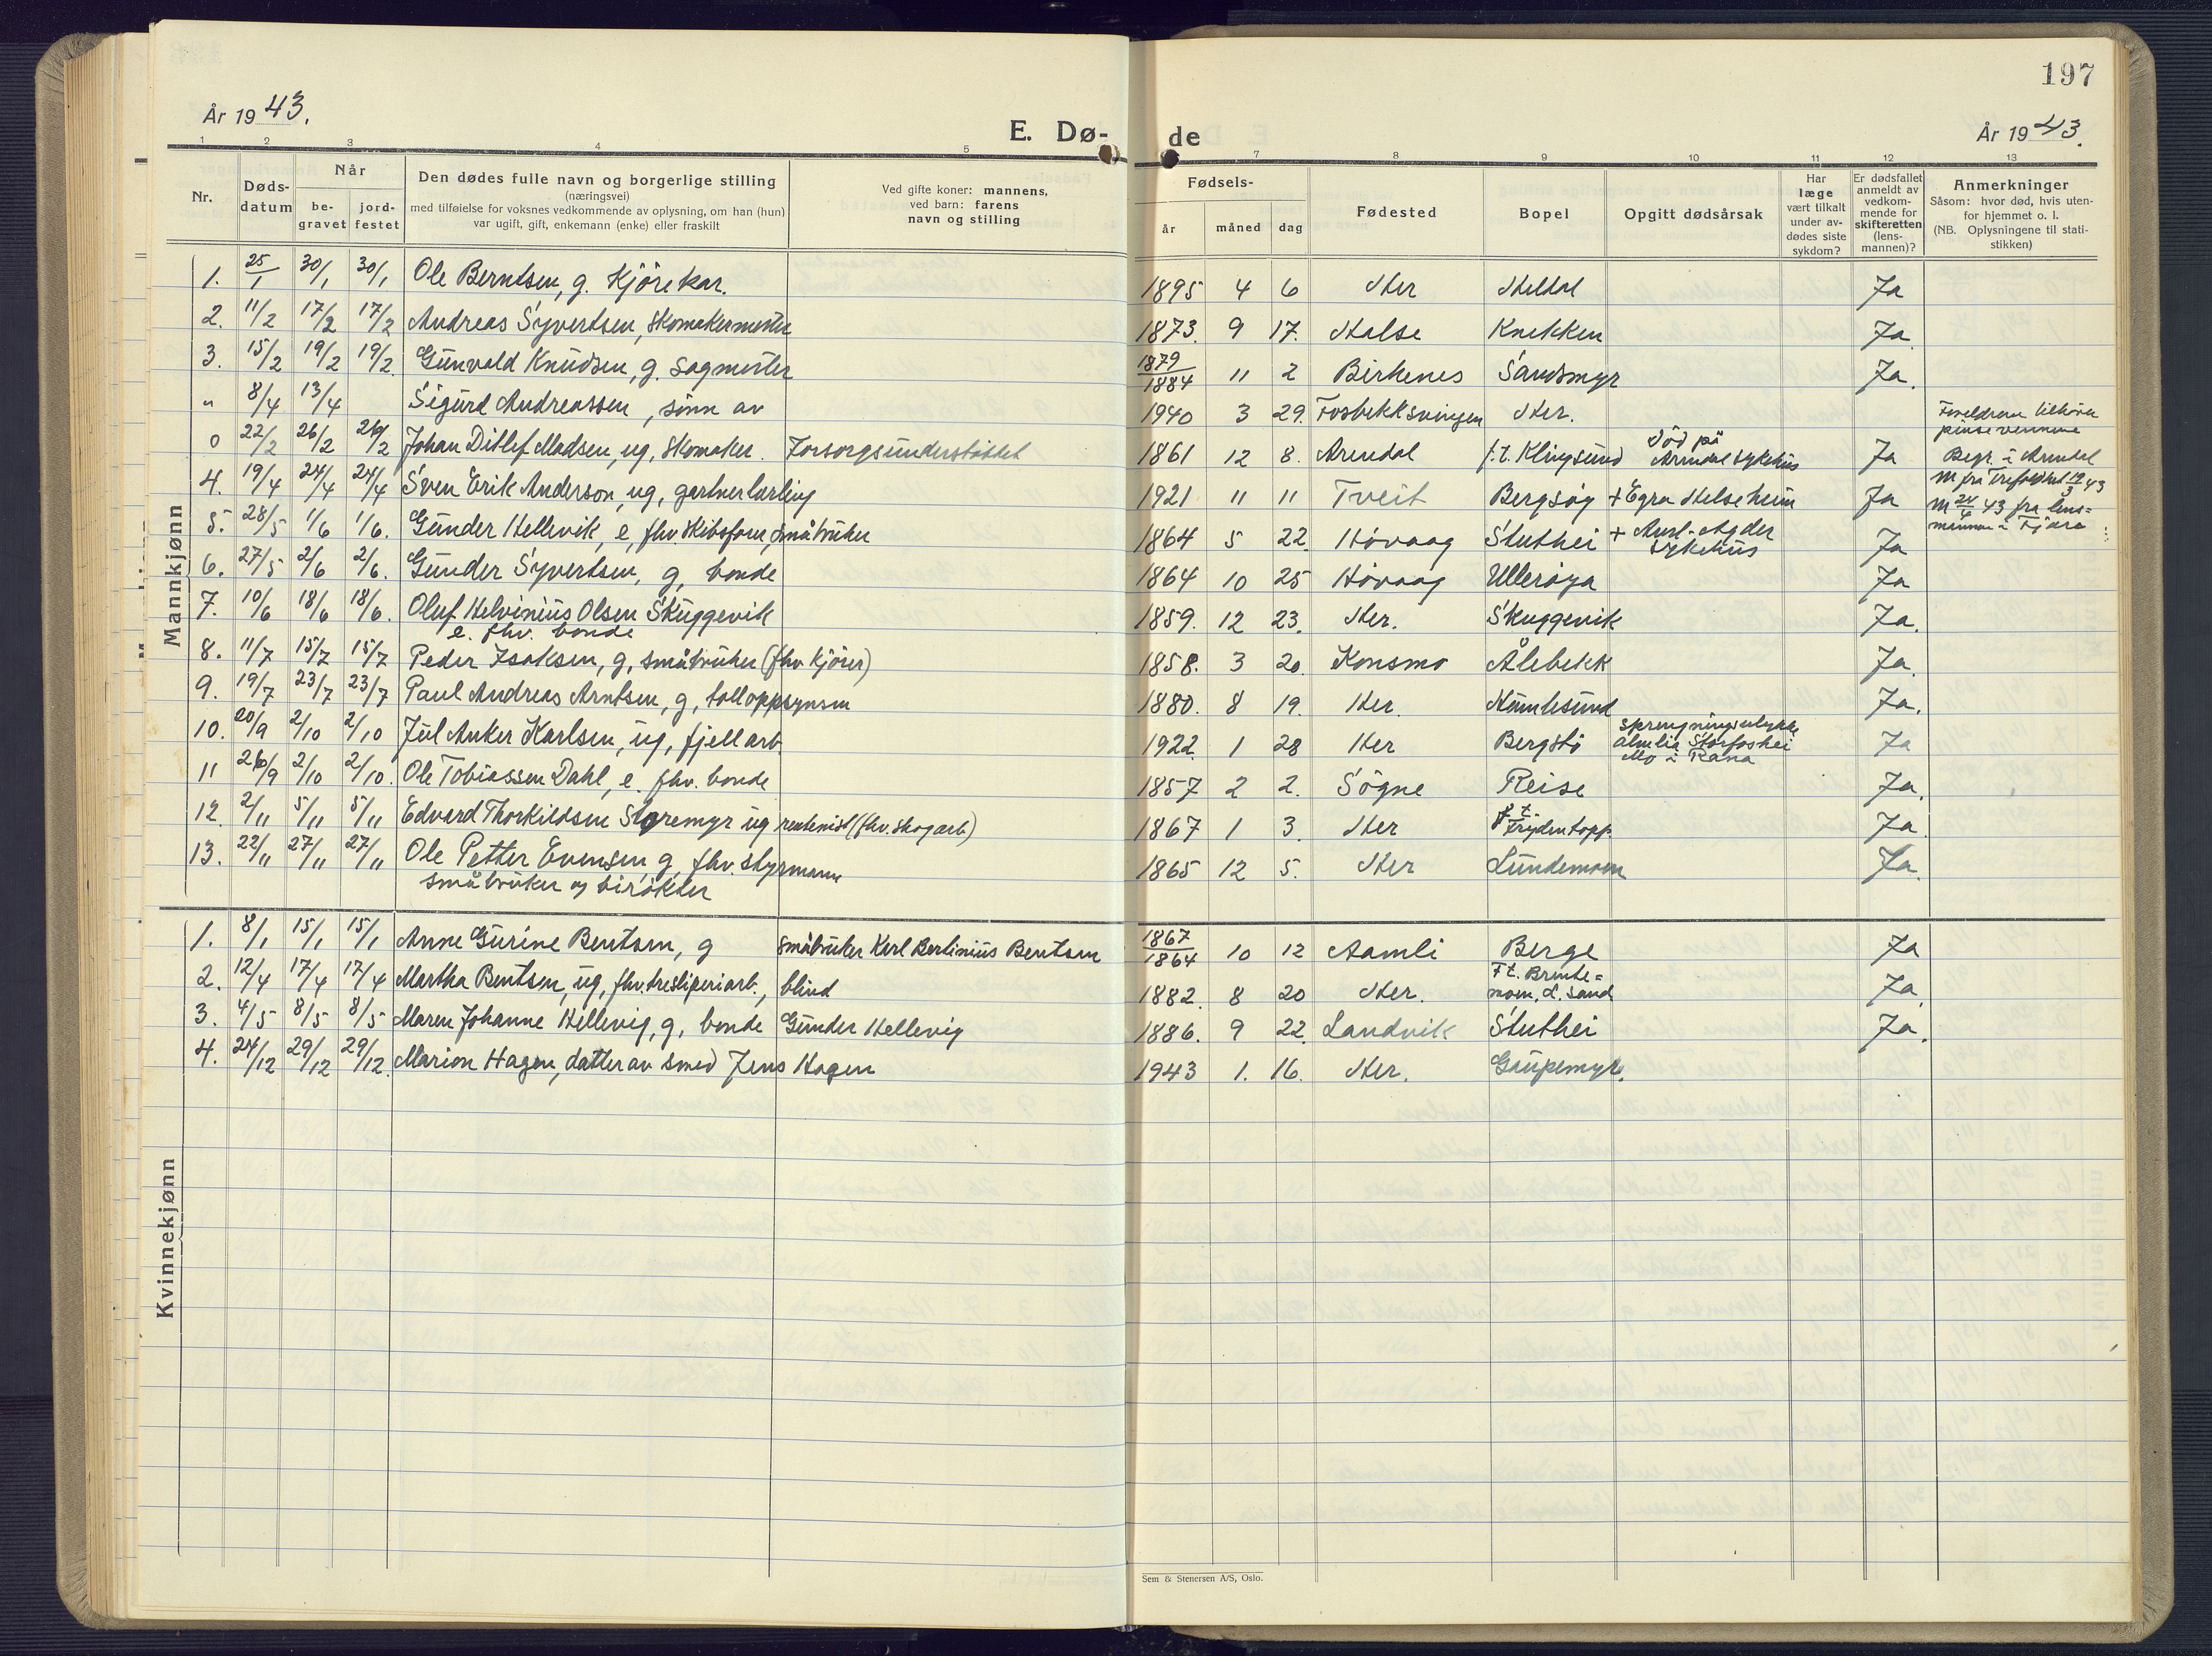 197
År 1943.
E. Dø-
de
År 1943.
1 2 3 4 5 7 8 9 10 11 12 13
Nr.
Døds-
datum
Når
be-
gravet
jord-
festet
Den dødes fulle navn og borgerlige stilling
(næringsvei)
med tilføielse for voksnes vedkommende av oplysning, om han (hun)
var ugift, gift, enkemann (enke) eller fraskilt
Ved gifte koner: mannens,
ved barn: farens
navn og stilling
Fødsels-
år måned dag
Fødested
Bopel
Opgitt dødsårsak
Har
læge
vært tilkalt
under av-
dødes siste
sykdom?
Er dødsfallet
anmeldt av
vedkom-
mende for
skifteretten
(lens-
mannen)?
Anmerkninger
Såsom: hvor død, hvis uten-
for hjemmet o. l.
(NB. Oplysningene til stati-
stikken)
Mannkjønn
1. 25/1 30/1 30/1 Ole Berntsen, g. Kjörekar. 1895 4 6 Her Heldal Ja
2. 11/2 17/2 17/2 Andreas Syvertsen, Skomakermester 1873. 9 17. Halse Knekken Ja
3. 15/2 19/2 19/2. Gunvald Knudsen, g. Sagmester 1879/1884 11 2 Birkenes Sandsmyr Ja.
" 8/4 13/4 Sigurd Andreassen, sönn av 1940 3 29. Fossbekksvingen Her. Foreldrene tilhörer
pinsevennene
0 22/2 26/2 26/2 Johan Ditlef Madsen, ug, Skomaker. Forsorgsunderstöttet 1861 12 8. Arendal f.t. Klingsund Död på
Arendal sykehus Ja Begr. i Arendal
4. 19/4 24/4 24/4 Sven Erik Anderson, ug, gartnerlærling 1921 11 11 Tveit Bergsøy + Egra Helseheim Ja
5. 28/5 1/6 1/6. Gunder Hellevik, e, fhv. Skibsförer, småbruker 1864 5 22. Hövaag Stuthei + Aust-Agder
sykehus Ja
6. 27/5 2/6 2/6. Gunder Syvertsen, g, bonde 1864 10 25 Hövaag Ulleröya Ja
7. 10/6 18/6 18/6. Oluf Helvinius Olsen Skuggevik
e. fhv. bonde 1859. 12 23. Her. Skuggevik Ja.
8. 11/7 15/7 15/7 Peder Isaksen, g, småbruker (fhv kjörer) 1858. 3 20. Konsmo Ålebekk Ja.
9. 19/7 23/7 23/7 Paul Andreas Arntsen, g, tolloppsynsm 1880. 8 19. Her. Humlesund Ja.
10. 20/9 2/10 2/10 Jul Anker Karlsen, ug, fjellarb 1922. 1 28 Her Bergstö Sprengningsulykke
Storfoshei
Mo i Rana Ja
11 26/9 2/10 2/10. Ole Tobiassen Dahl, e. fhv. bonde 1857 2 2. Sögne Reise Ja.
12. 2/11 5/11 5/11 Edvard Thorkildsen Storemyr ug rentenist (fhv. skogarb) 1867 1 3. Her f.t.
Frydentopp Ja.
13. 22/11 27/11 27/11 Ole Petter Evensen, g, fhv. styrmann
småbruker og birökter 1865 12 5. Her Lundemoen Ja.
Kvinnekjønn
1. 8/1 15/1 15/1 Anne Gurine Bentsen, g småbruker Karl Bertinius Bentsen 1867/1864 10 12 Aamli Berge Ja
2. 12/4 17/4 17/4 Martha Bentsen, ug, fhv. tresliperiarb., blind 1882. 8 20 Her. F.t. Brente=
moen, L. Sand Ja.
3. 4/5 8/5 8/5 Maren Johanne Hellevig, g, bonde Gunder Hellevig 1886. 9 22. Landvik Stuthei Ja.
4. 24/12 29/12 29/12. Marion Hagen, datter av smed Jens Hagen 1943 1. 16. Her. Gaupemyr.
Sem & Stenersen A/S, Oslo.